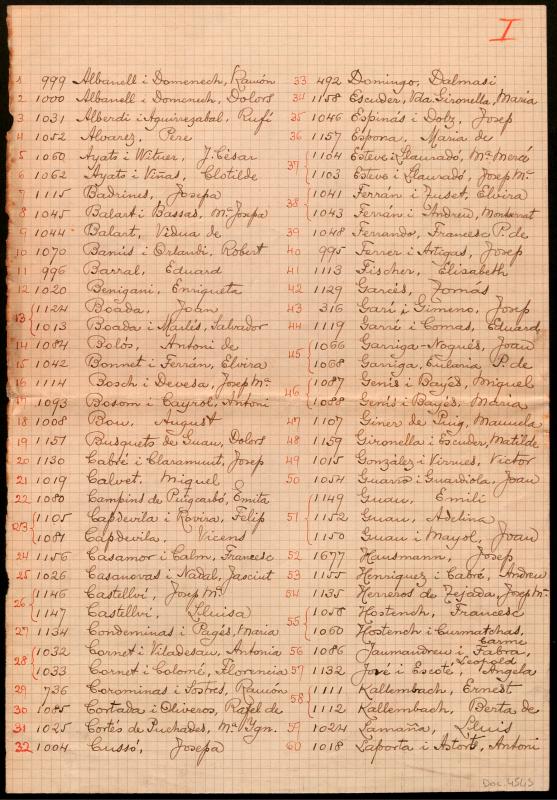 I
1 999 Albanell i Domenech, Ramón
2 1000 Albanell i Domenech, Dolors
3 1031 Alberdi i Aguirrezabal, Rufí
4 1052 Alvarez, Pere
5 1060 Ayats i Wituer, J. Cèsar
6 1062 Ayats i Viñas, Clotilde
7 1115 Badrines, Josepa
8 1045 Balart i Bassas, Mª Josepa
9 1044 Balart, Vidua de
10 1070 Banús i Orlandi, Robert
11 996 Barral, Eduard
12 1020 Benigani, Enriqueta
13 1124 Boada, Joan
1013 Boada i Marlés, Salvador
14 1084 Bolòs, Antoni de
15 1042 Bonnet i Ferrán, Elvira
16 1114 Bosch i Devesa, Josep Mª
17 1093 Bosom i Cayrol, Antoni
18 1008 Bou, August
19 1151 Busquets de Guau, Dolors
20 1130 Cabré i Claramunt, Josep
21 1019 Calvet, Miquel
22 1080 Campins de Puigcarbó, Emita
23 1105 Capdevila i Rovira, Felip
1081 Capdevila, Vicens
24 1156 Casamor i Calm, Francesc
25 1026 Casanovas i Nadal, Jasciut
26 1146 Castellví, Josep Mª
1147 Castellví, Lluisa
27 1134 Condeminas i Pagés, Maria
28 1032 Cornet i Viladesau, Antonia
1033 Cornet i Colomé, Florencia
29 736 Corominas i Sostres, Ramón
30 1085 Cortada i Oliveros, Rafel de
31 1025 Cortés de Puchades, Mª Ign.
32 1004 Cussó, Josepa
33 492 Domingo, Dalmasi
34 1158 Escuder, Vda. Gironella, Maria
35 1046 Espinás i Dolz, Josep
36 1157 Espona, Maria de
37 1104 Esteve i Llauradó, Mª Mercè
1103 Esteve i Llauradó, Josep Mª
38 1041 Ferrán i Juset, Elvira
1043 Ferrán i Andreu, Montserrat
39 1048 Ferrando, Francesc P. de
40 995 Ferrer i Artigas, Josep
41 1113 Fischer, Elisabeth
42 1129 Garcés, Tomás
43 316 Garí i Gimeno, Josep
44 1119 Garré i Comas, Eduard
45 1066 Garriga-Nogués, Joan
1068 Garriga, Eularia P. de
46 1087 Genís i Bayés, Miquel
1088 Genís i Bayés, Maria
47 1107 Giner de Puig, Manuela
48 1159 Gironella i Escuder, Matilde
49 1015 González i Virrues, Victor
50 1054 Guarro i Guardiola, Joan
51 1149 Guau, Emili
1152 Guau, Adelina
1150 Guau i Mayol, Joan
52 1677 Hausmann, Josep
53 1155 Henriquez i Cabré, Andreu
54 1135 Herreros de Tejada, Josep Mª
55 1058 Hostench, Francesc
1060 Hostench i Curmatchas, Carme
56 1086 Jaumandreu i Fabra, Leopold
57 1132 Jové i Escoté, Angela
58 1111 Kallembach, Ernest
1112 Kallembach, Berta de
59 1024 Lamaña, Lluis
60 1018 Laporta i Astort, Antoni
Doc. 4545